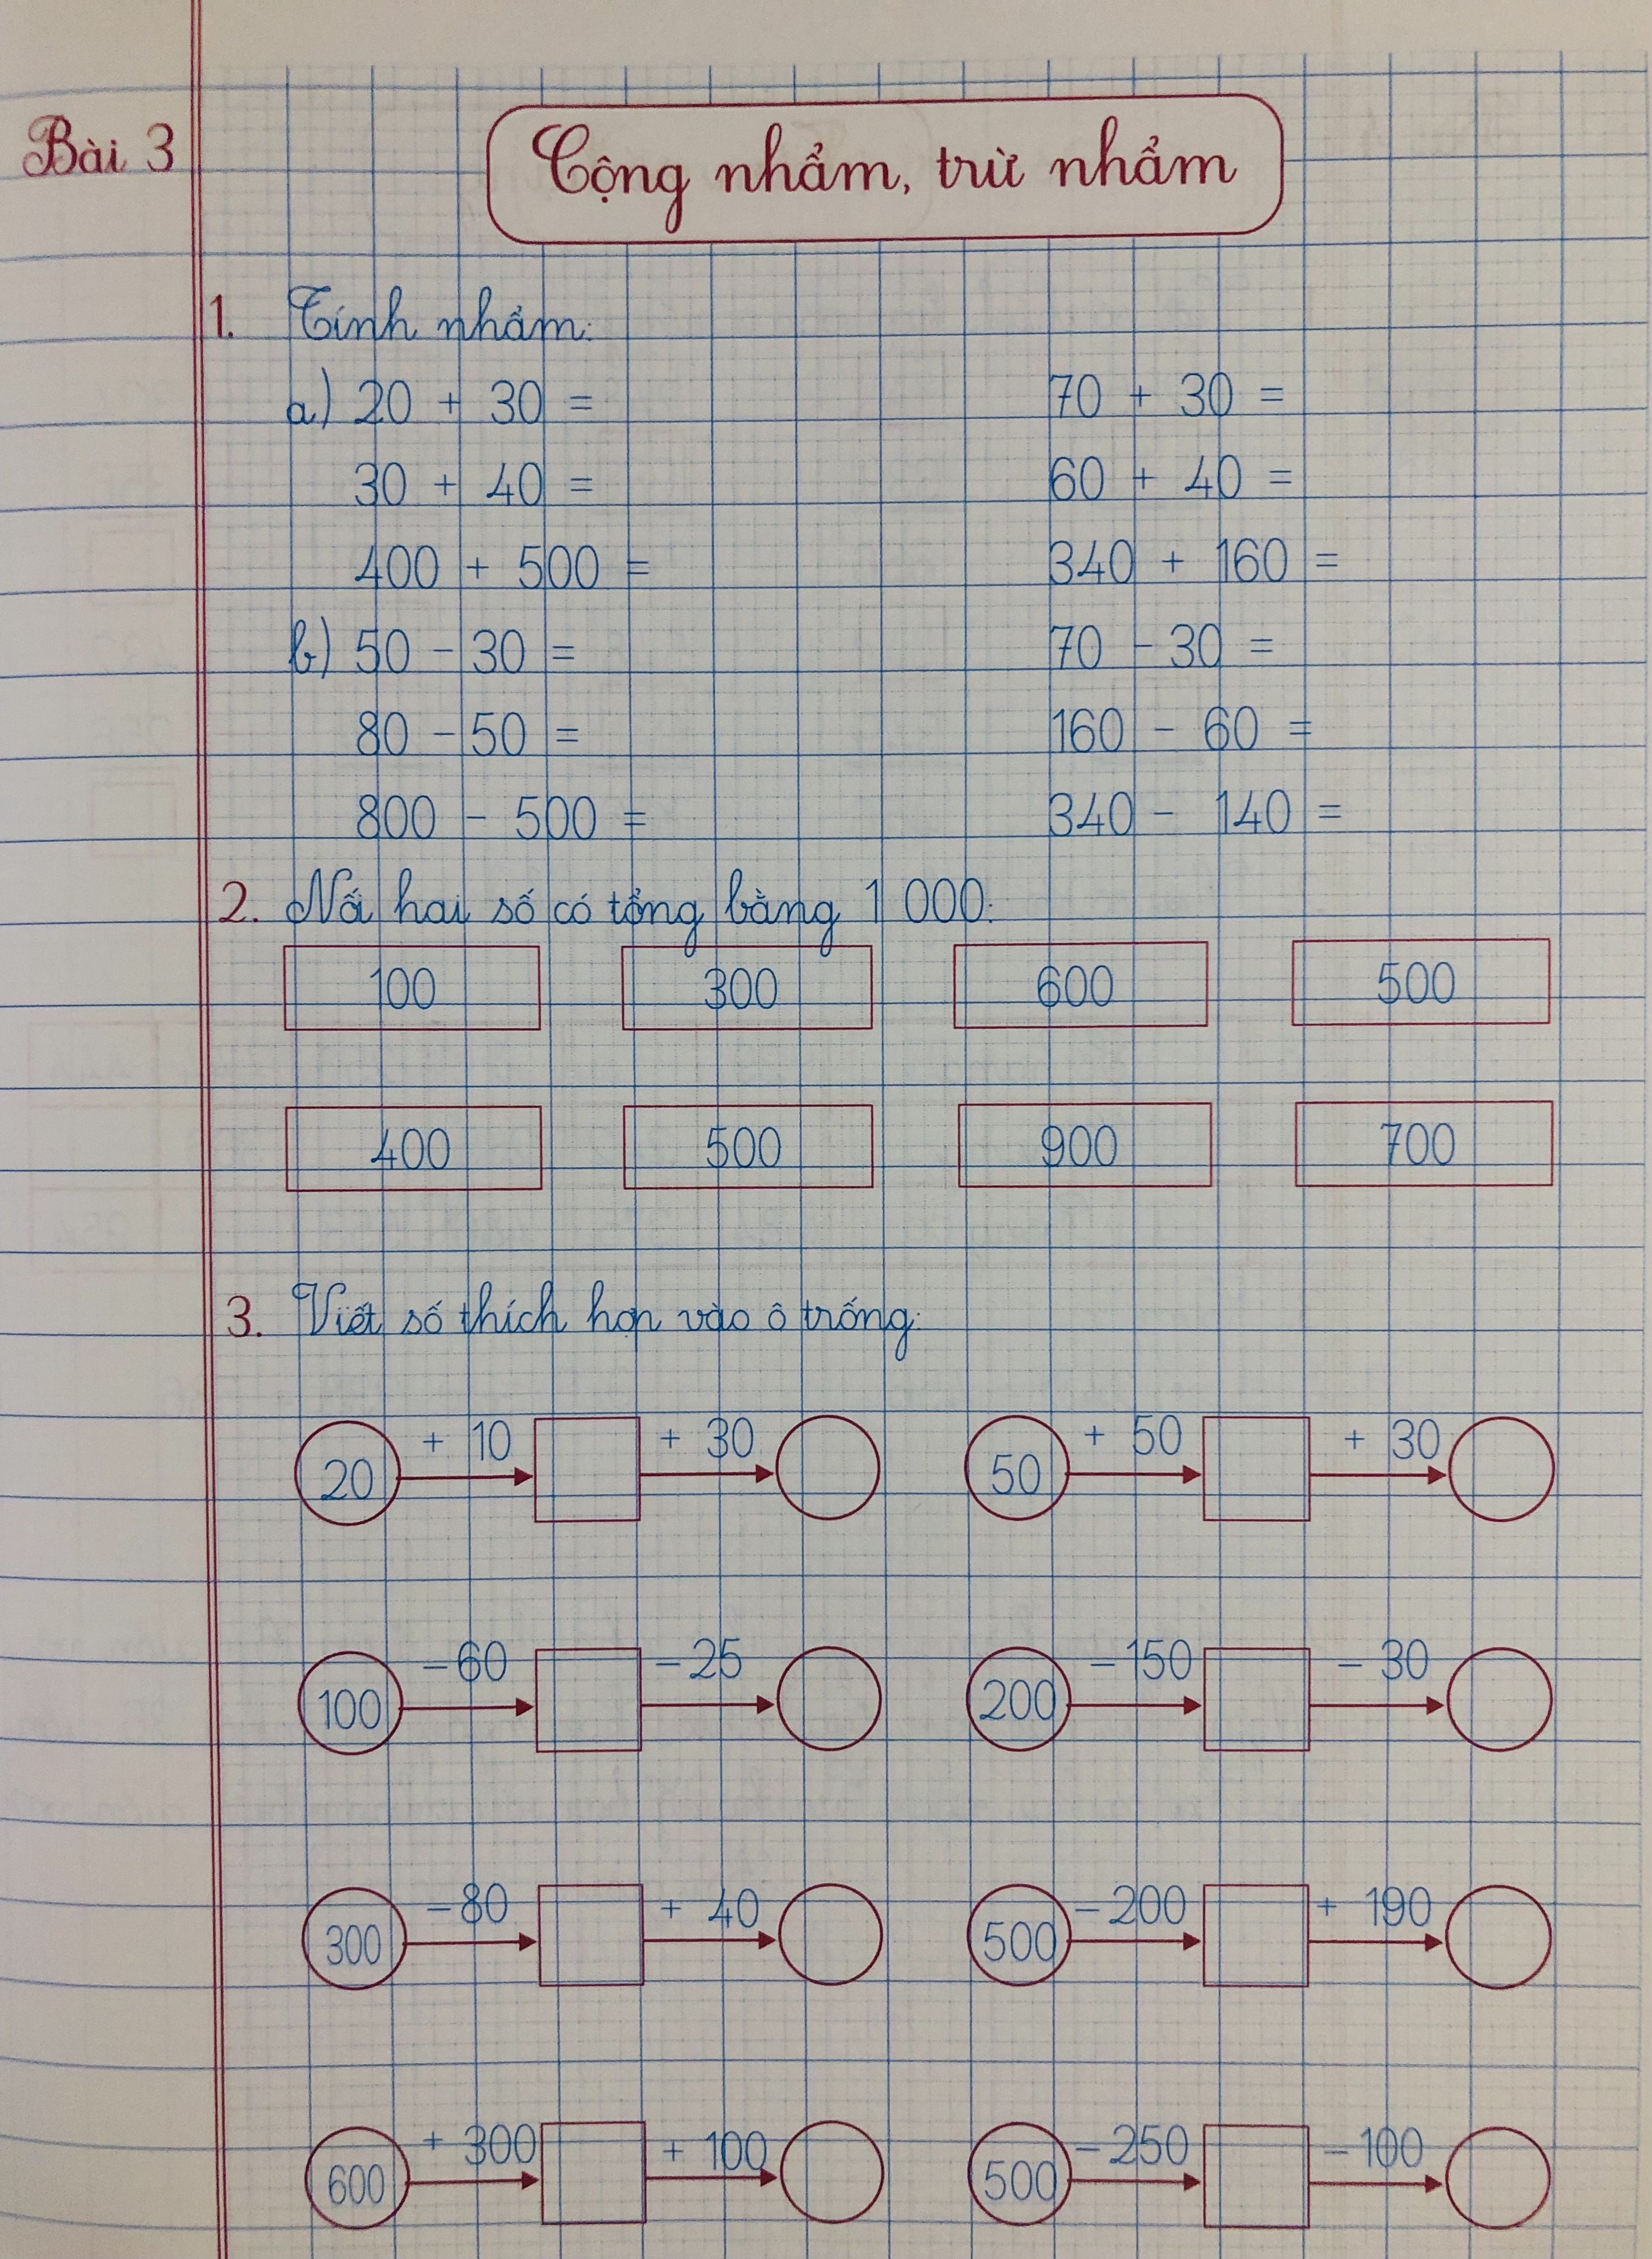 Bài 3
Cộng nhẩm, trừ nhẩm
1. Tính nhẩm:
a) 20 + 30 = 70 + 30 =
30 + 40 = 60 + 40 =
400 + 500 = 340 + 160 =
b) 50 - 30 = 70 - 30 =
80 - 50 = 160 - 60 =
800 - 500 = 340 - 140 =
2. Nối hai số có tổng bằng 1 000:
100 300 600 500
400 500 900 700
3. Viết số thích hợp vào ô trống:
20 + 10 + 30 50 + 50 + 30
100 - 60 - 25 200 - 150 - 30
300 - 80 + 40 500 - 200 + 190
600 + 300 + 100 500 - 250 - 100